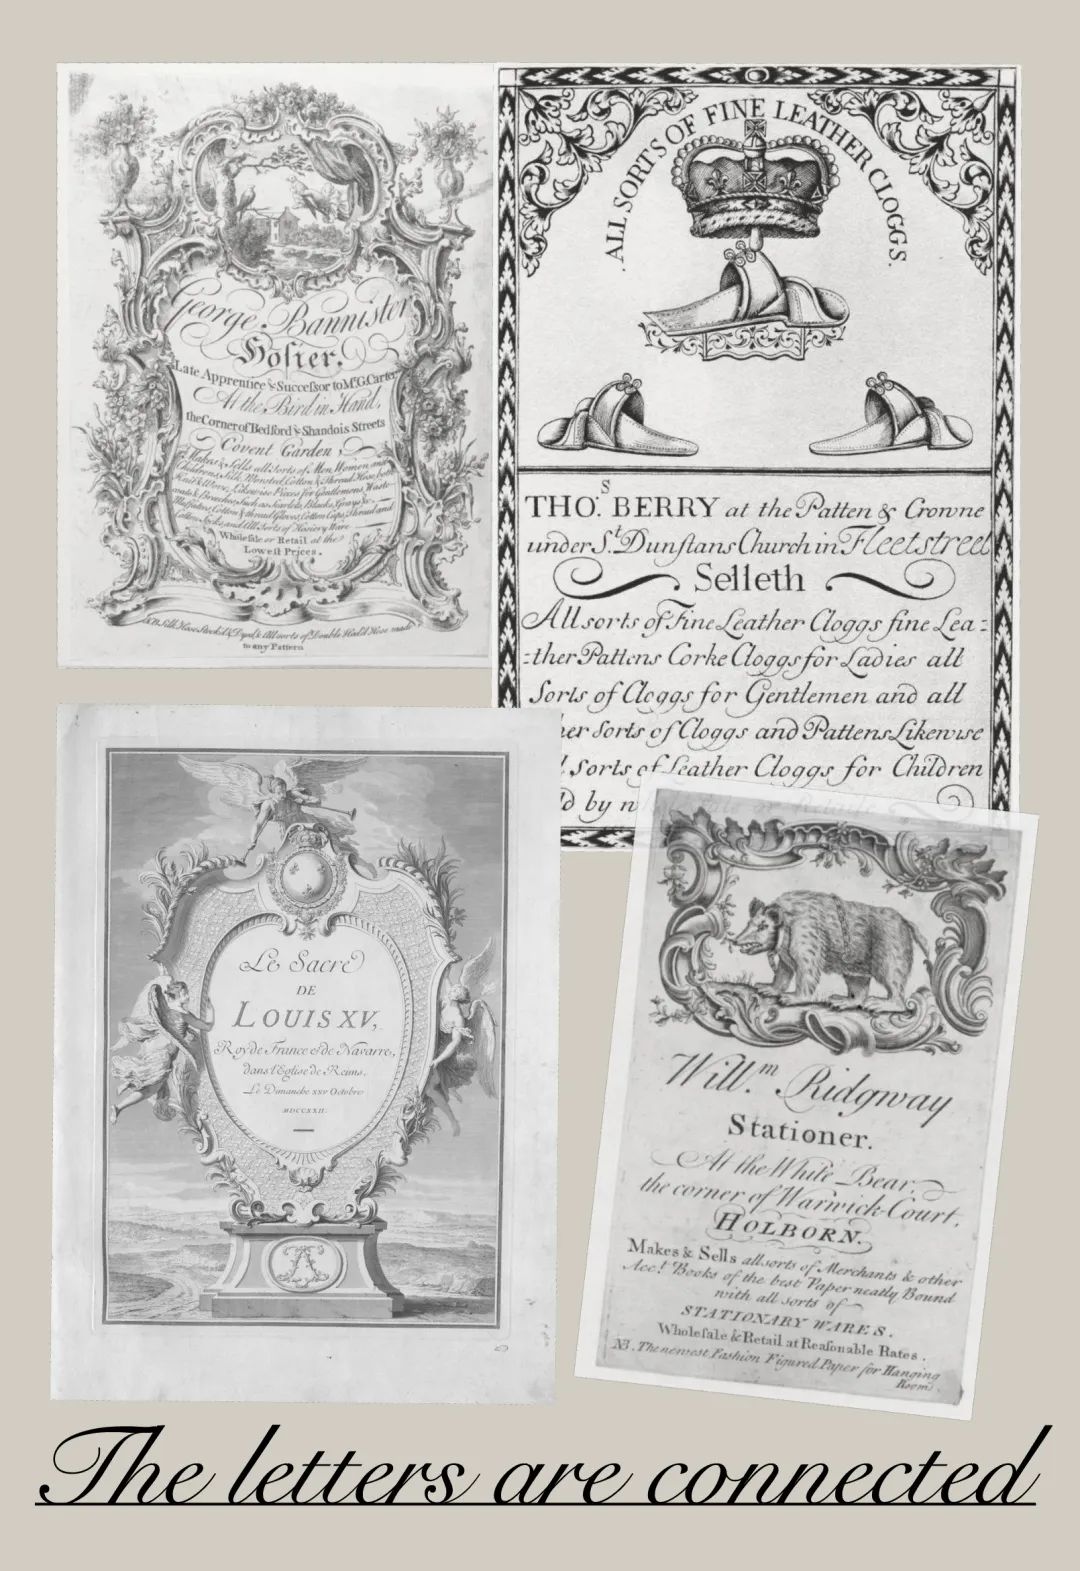 George Bannister
Hosier.
Late Apprentice & Succeſsor to Mr. G. Carter
At the Bird in Hand,
the Corner of Bedford & Shandois Streets
Covent Garden,
Makes & Sells all Sorts of Men Women and
Childrens, Silk, Worsted, Cotton & Thread Hose, both
Knit & Wove, Likewise Pieces for Gentlemens Waist-
coats & Breeches, Such as Scarlets, Blacks, Grays &c
Muffatees, Cotton & thread Gloves, Cotton Caps, Thread and
Cotton Socks, and All Sorts of Hosiery Ware
Wholeſale or Retail at the
Lowest Prices.
NB. Silk Hose Stock'd & Dyed, & All sorts of Double Heel'd Hose made
to any Pattern
ALL SORTS OF FINE LEATHER CLOGGS.
THO.S BERRY at the Patten & Crowne
under St. Dunſtans Church in Fleetstreet
Selleth
All sorts of Fine Leather Cloggs fine Lea=
=ther Pattens Corke Cloggs for Ladies all
Sorts of Cloggs for Gentlemen and all
her Sorts of Cloggs and Pattens Likewise
Sorts of Leather Cloggs for Children
by
Le Sacre
DE
LOUIS XV,
Roy de France et de Navarre,
dans l'Eglise de Reims,
Le Dimanche XXV Octobre
MDCCXXII.
Will.m Ridgway
Stationer.
At the White Bear,
the corner of Warwick-Court,
HOLBORN.
Makes & Sells all sorts of Merchants & other
Acc.t Books of the best Paper neatly Bound
with all sorts of
STATIONARY WARES.
Wholeſale & Retail at Reaſonable Rates.
NB. The newest Fashion Figured Paper for Hanging
Rooms.
The letters are connected